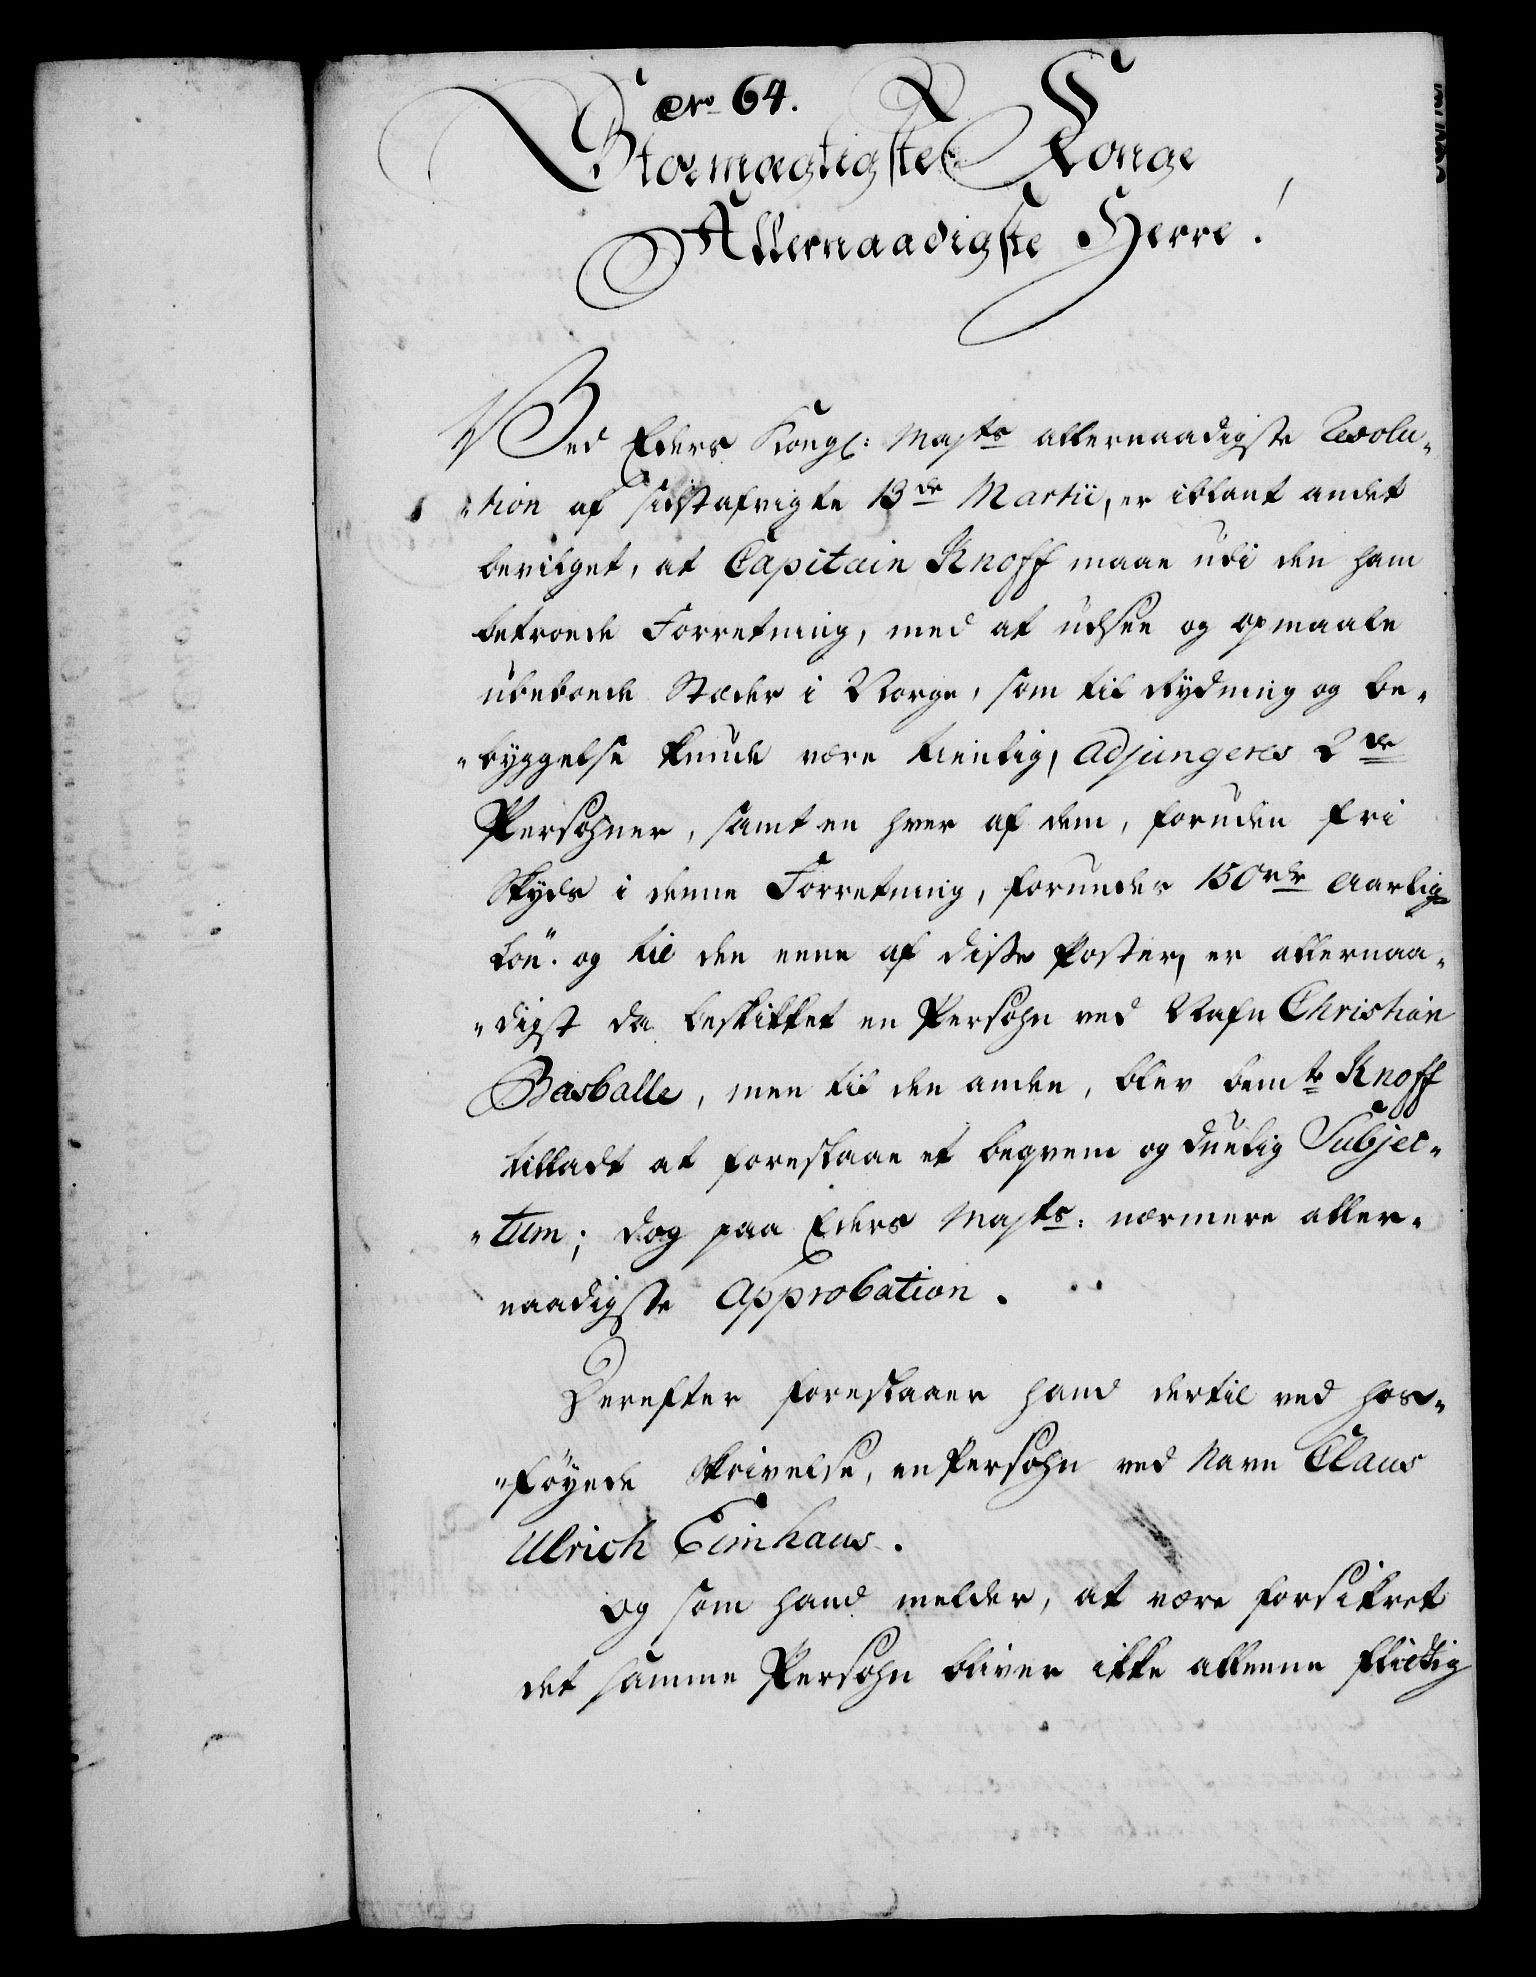 No 64.
Stormægtigste Konge
Allernaadigste Herre!
Ved Eders Kongl: Majts allernaadigste Resolu-
-tion af sidstafvigte 13de Martii, er iblant andet
bevilget, at Capitain Knoff maae udi den ham
betroede Forretning, med at udsee og opmaale
ubeboede Stæder i Norge, som til Rydning og be-
-byggelse kunde være tienlig, adjungeres 2de
Persohner, samt en hver af dem, foruden fri
Skyds i denne Forretning, forundes 150 rdr aarlig
Løn. og til den eene af disse Poster, er allernaa-
-digst da beskikket en Persohn ved Nafn Christian
Basballe, men til den anden, blev bemte Knoff
tilladt at foreslaae et beqvem og duelig Subjec-
-tum; dog paa Eders Majts: nærmere aller-
naadigste Approbation.
Derefter foreslaaer hand dertil ved hos-
-føyede Skrivelse, en Persohn ved Navn Claus
Ulrich Eimhaus.
Og som hand melder, at være forsikret
det samme Persohn bliver ikke alleene flittig